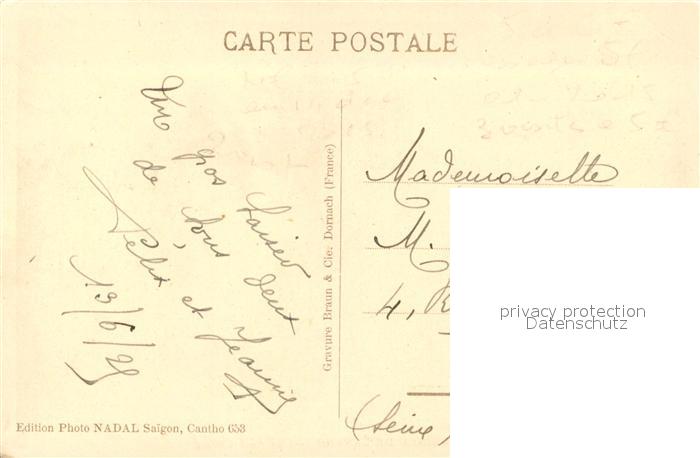 CARTE POSTALE
Un gros baiser
de tous deux
et Jeannie
19/6/25
Gravure Braun & Cie: Dornach (France)
Mademoiselle
M.
4, R
(Seine
privacy protection
Datenschutz
Edition Photo NADAL Saïgon, Cantho 653